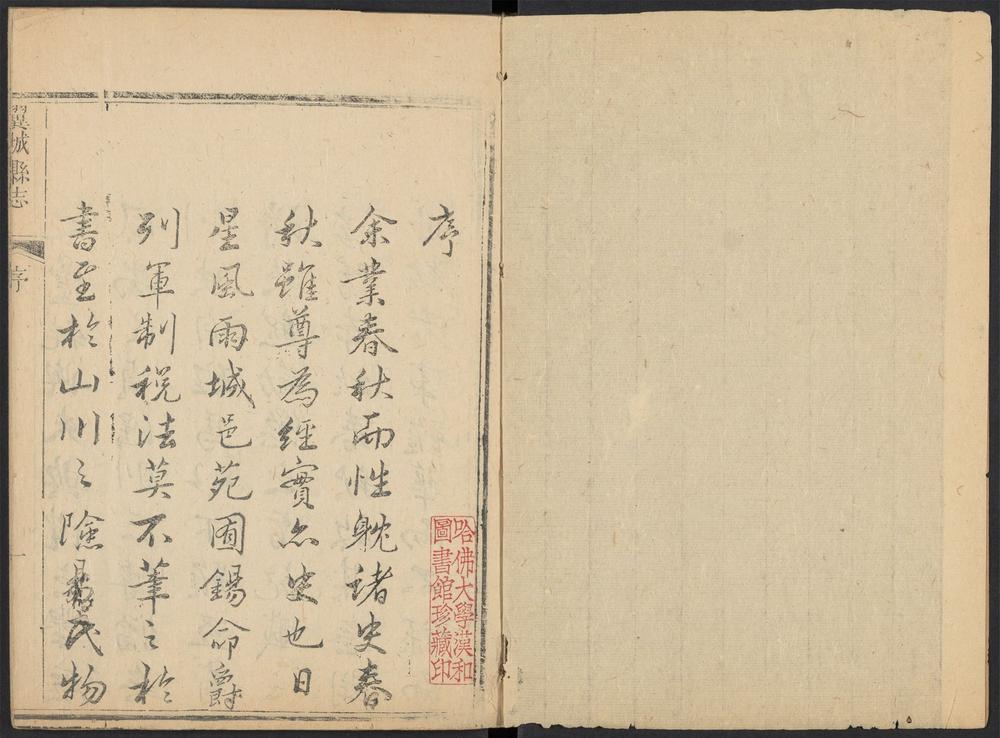 序
余業春秋而性躭諸史春
秋雖尊為經實亦史也日
星風雨城邑苑囿錫命爵
列軍制税法莫不筆之於
書至於山川之險易民物
翼城縣志
序
一
哈佛大學漢和
圖書館珍藏印